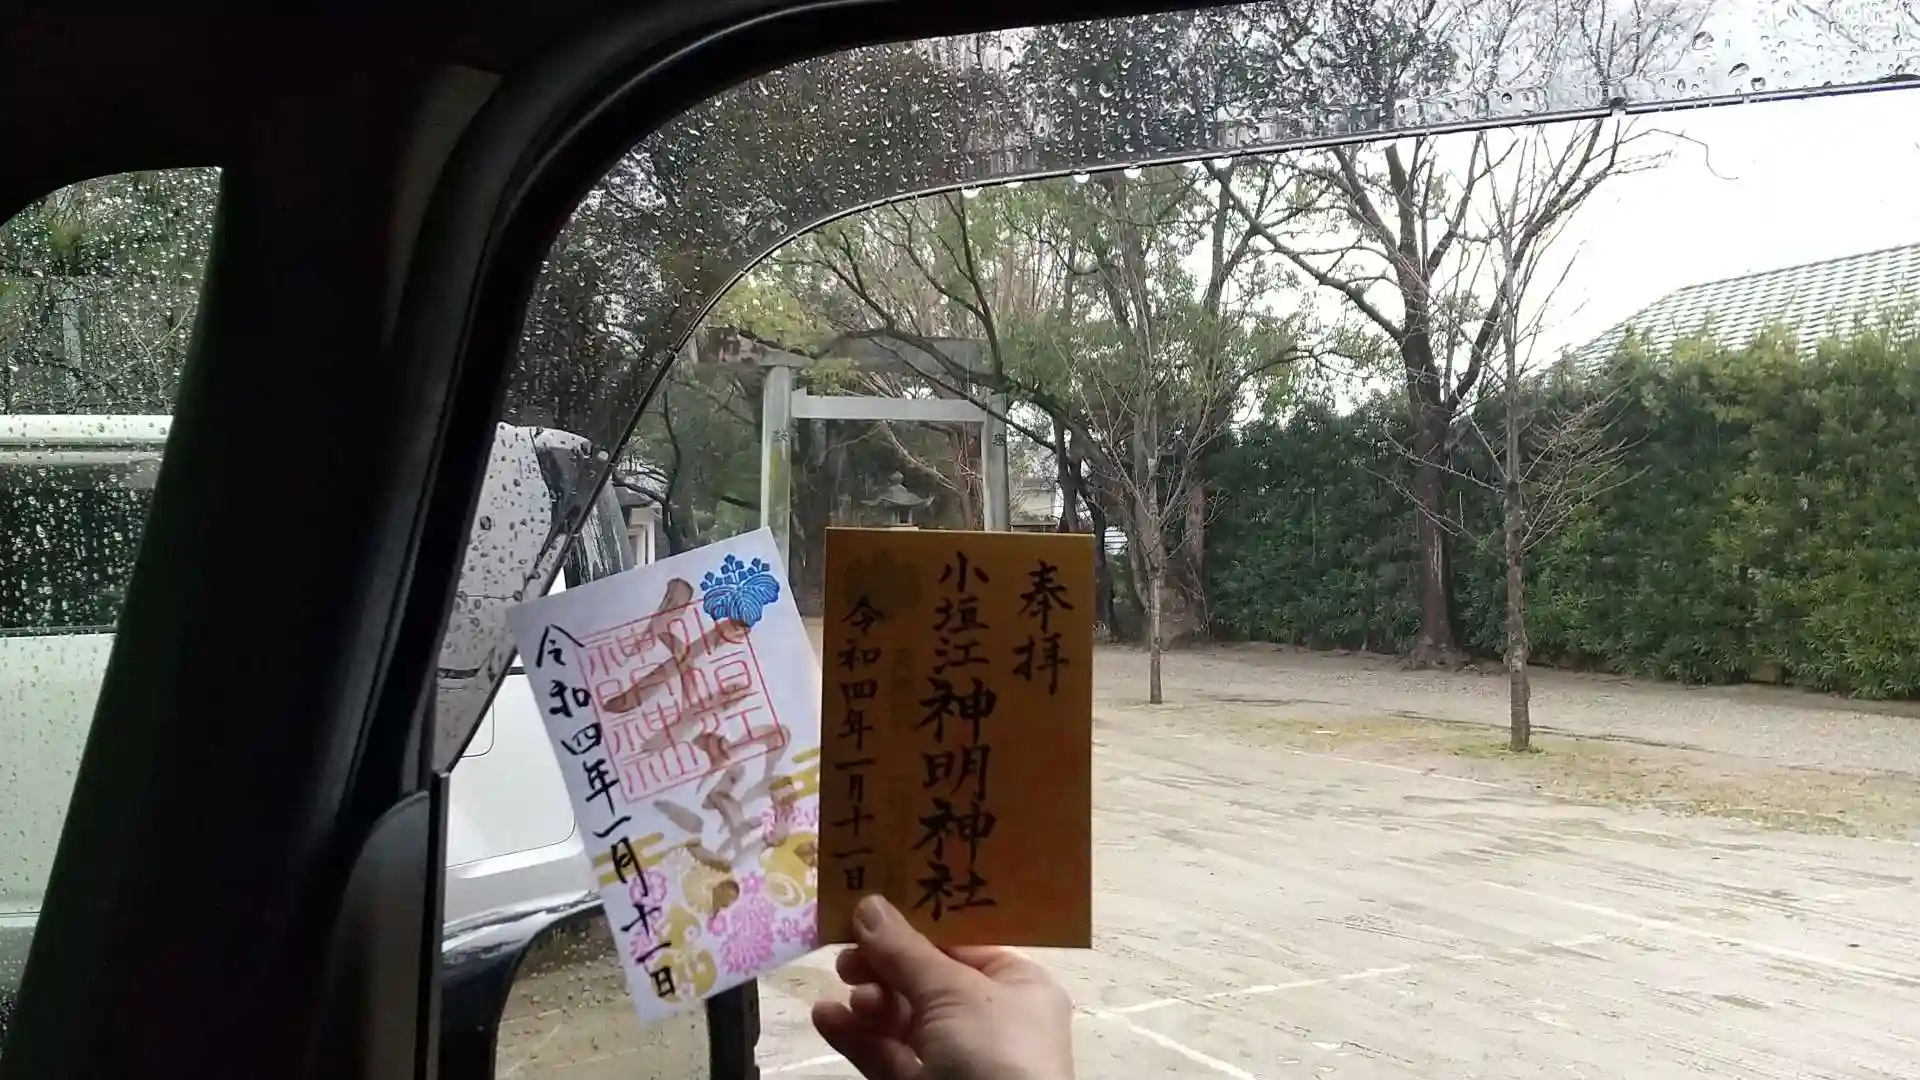 奉拝
小垣江神明神社
令和四年一月十一日
小垣江
神明神社
令和四年一月十一日